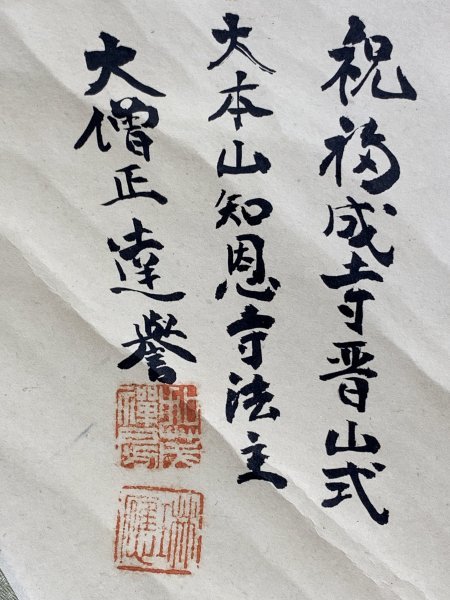 祝福成寺晋山式
大本山知恩寺法主
大僧正達誉